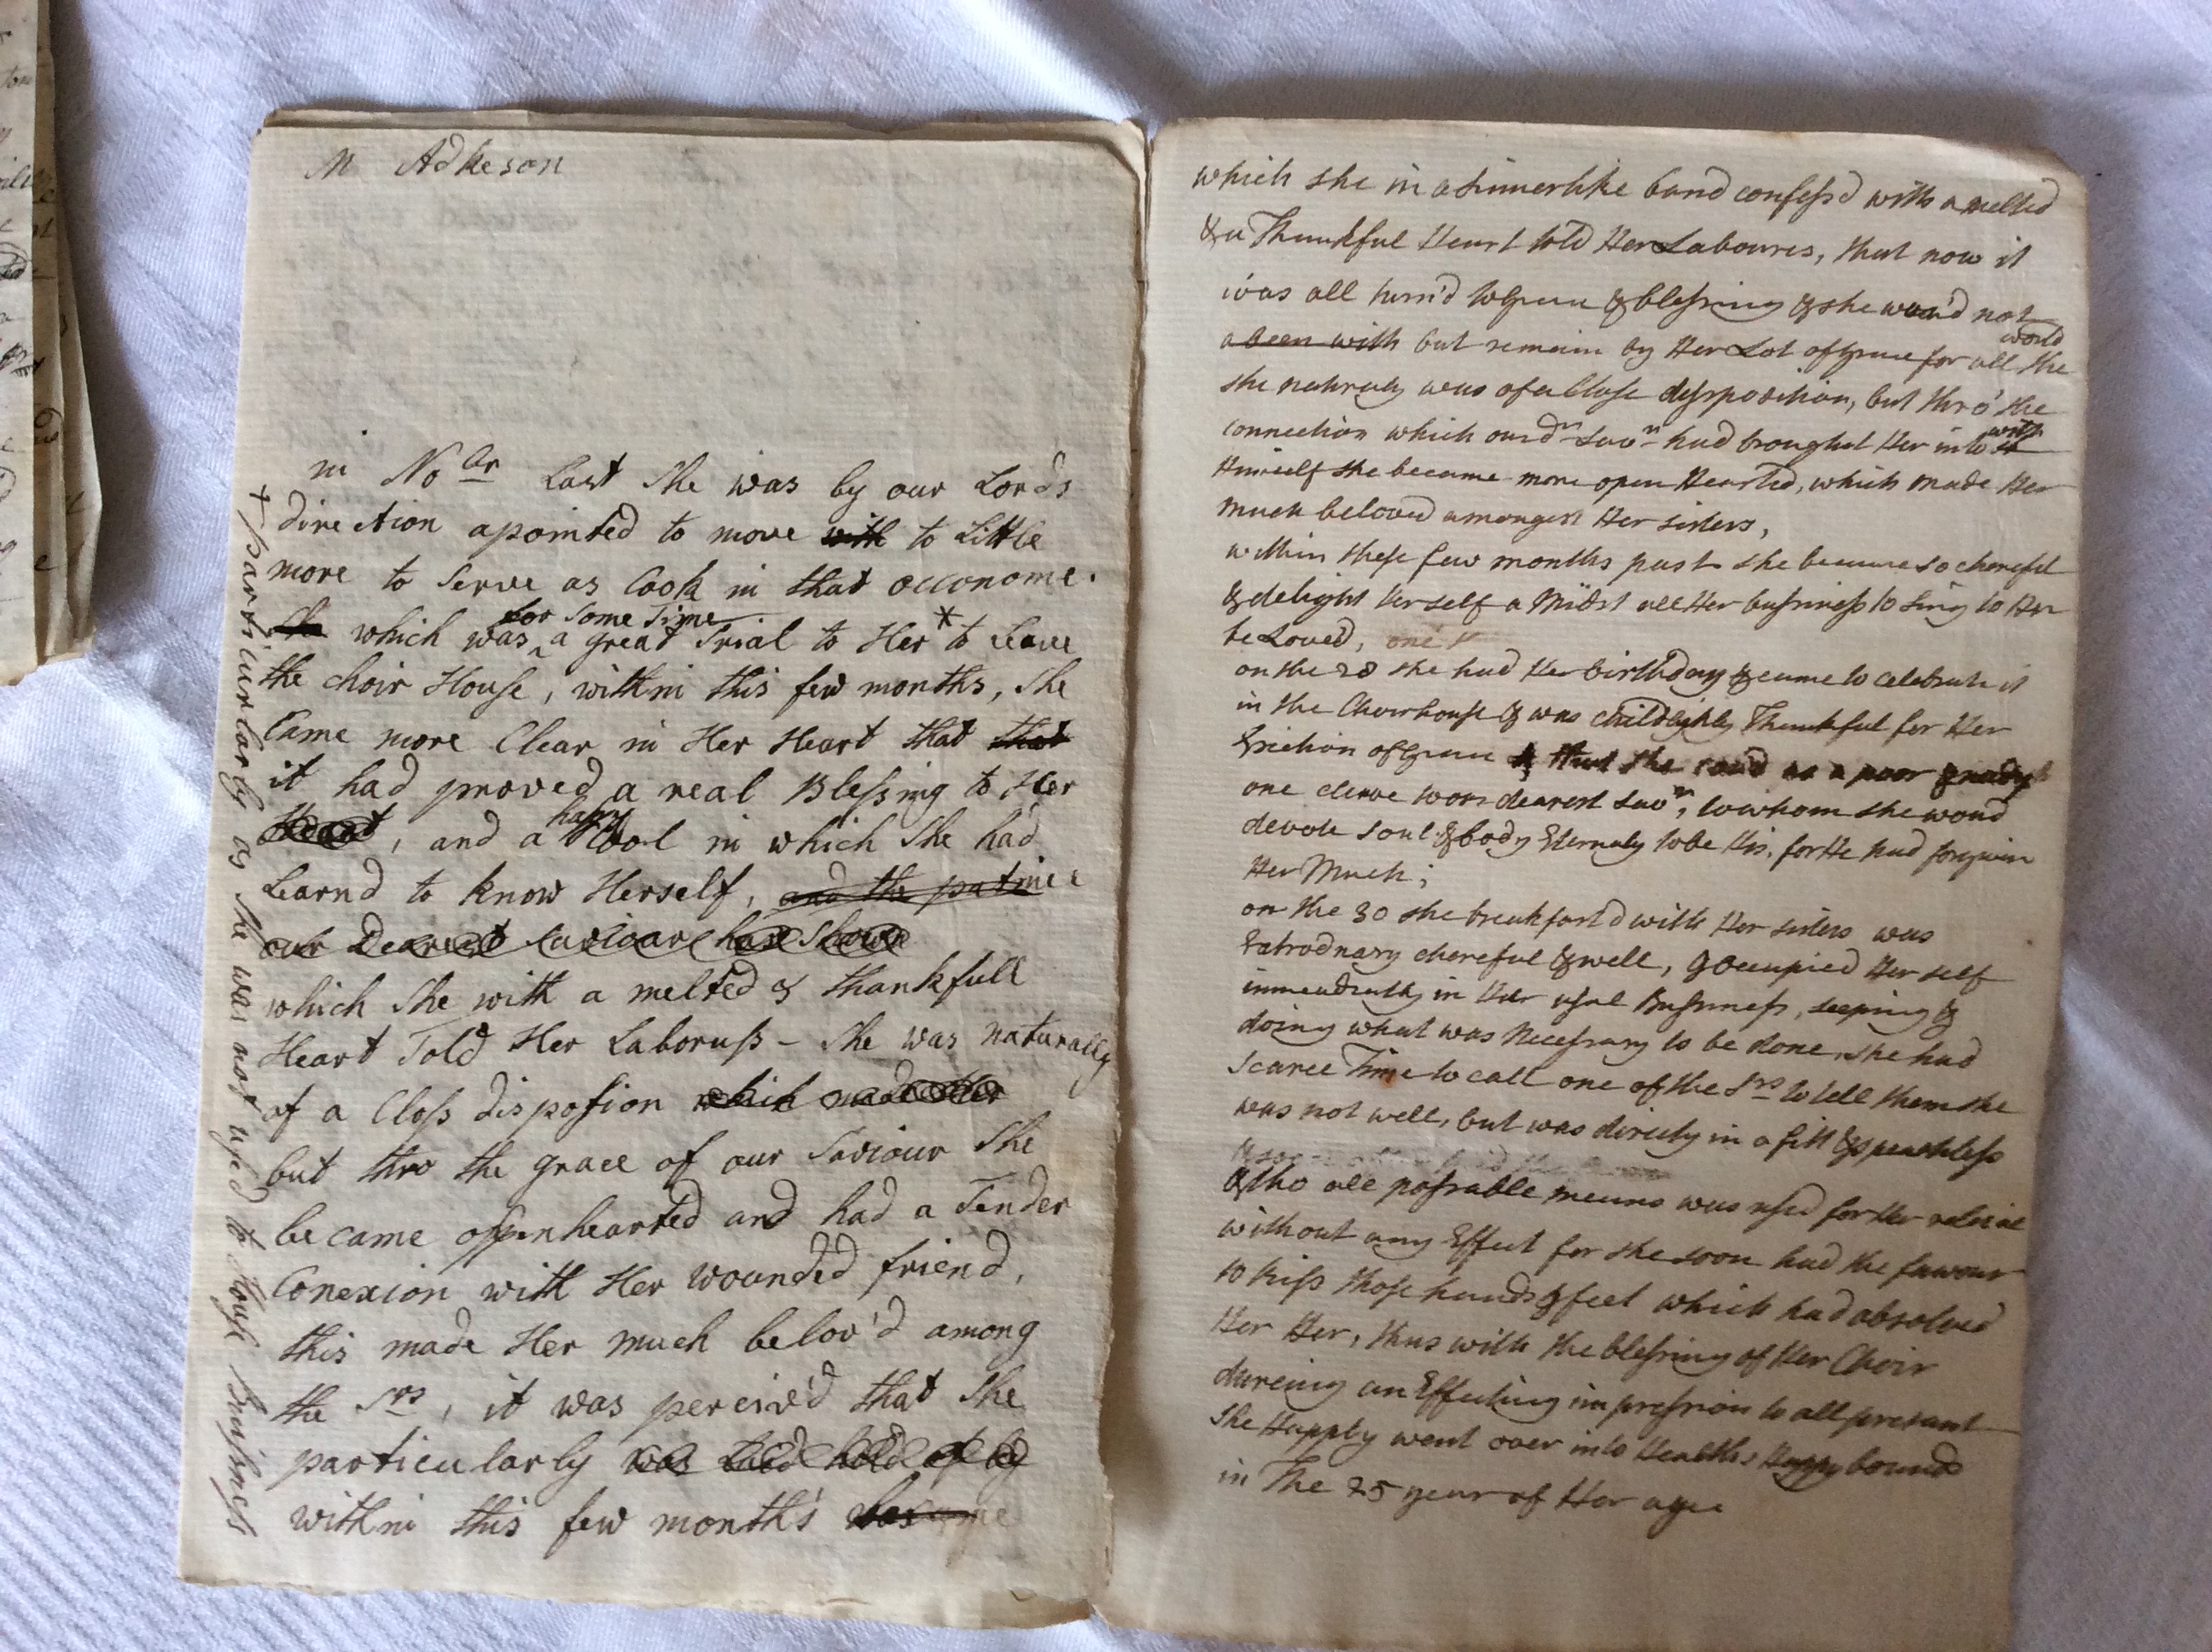 M Adkeson
in No br Last She was by our Lords
direction apointed to move with to Little
more to Serve as Cook in that occonome.
for Some Time
which was a great Trial to Her * to Leave
the choir House, within this few months, She
Came more Clear in Her Heart that that
it had proved a real Blessing to Her
happy
Heart, and a School in which She had
Learnd to know Herself, and the patince
our Dearest Saviour have Shown
which She with a melted & thankfull
Heart Told Her Laboruss - She was naturally
of a Closs disposion which made Her
but thro the grace of our Saviour She
became oppinhearted and had a Tender
Conexion with Her wounded friend,
this made Her much belov'd among
the Srs, it was perceiv'd that She
particularly was laid hold of by
within this few month's became
+ particurlarly as She was not used to House Buissness
which she in a sinnerlike band confess'd with a melted
& a Thankful Heart told Her Laboures, that now it
was all turn'd to Grace & blessing & she wou'd not
would
a been with but remain by Her Lot of Grace for all the
she natruly was of a Close dessposition, but thro' the
with
connection which our dr Savr had broughat Her into
Himself she became more open Hearted, which made Her
much beloved amongest Her sisters,
within these few months past she became so chereful
& delight Herself a Midst all Her bussiness to Sing to Her
be Loved, one
on the 28 she had Her birthday & came to celebrate it
in the Choirhouse & was childlighly Thankful for Her
Ellection of Grace that she said as a poor
one cleave to our dearest Savr, to whom she woud
devote soul & body Eternaly to be His, for He had forgivin
Her Much;
on the 30 she breakfast'd with Her sisters was
Extrodnary chereful & well, & occupied Her self
immeadiatly in Her usual Bussiness, seeping &
doing what was Necessary to be done, she had
scarce Time to call one of the Srs to tell them she
was not well, but was dirictly in a fitt & speachless
& tho all possable means was used for Her releive
without any Effect for she soon had the favour
to kiss those hands & feet which had absolved
Her Her, thus with the blessing of Her Choir
dureing an Effecting impression to all presant
she Happly went over into Healths Happy bounds
in The 25 year of Her age